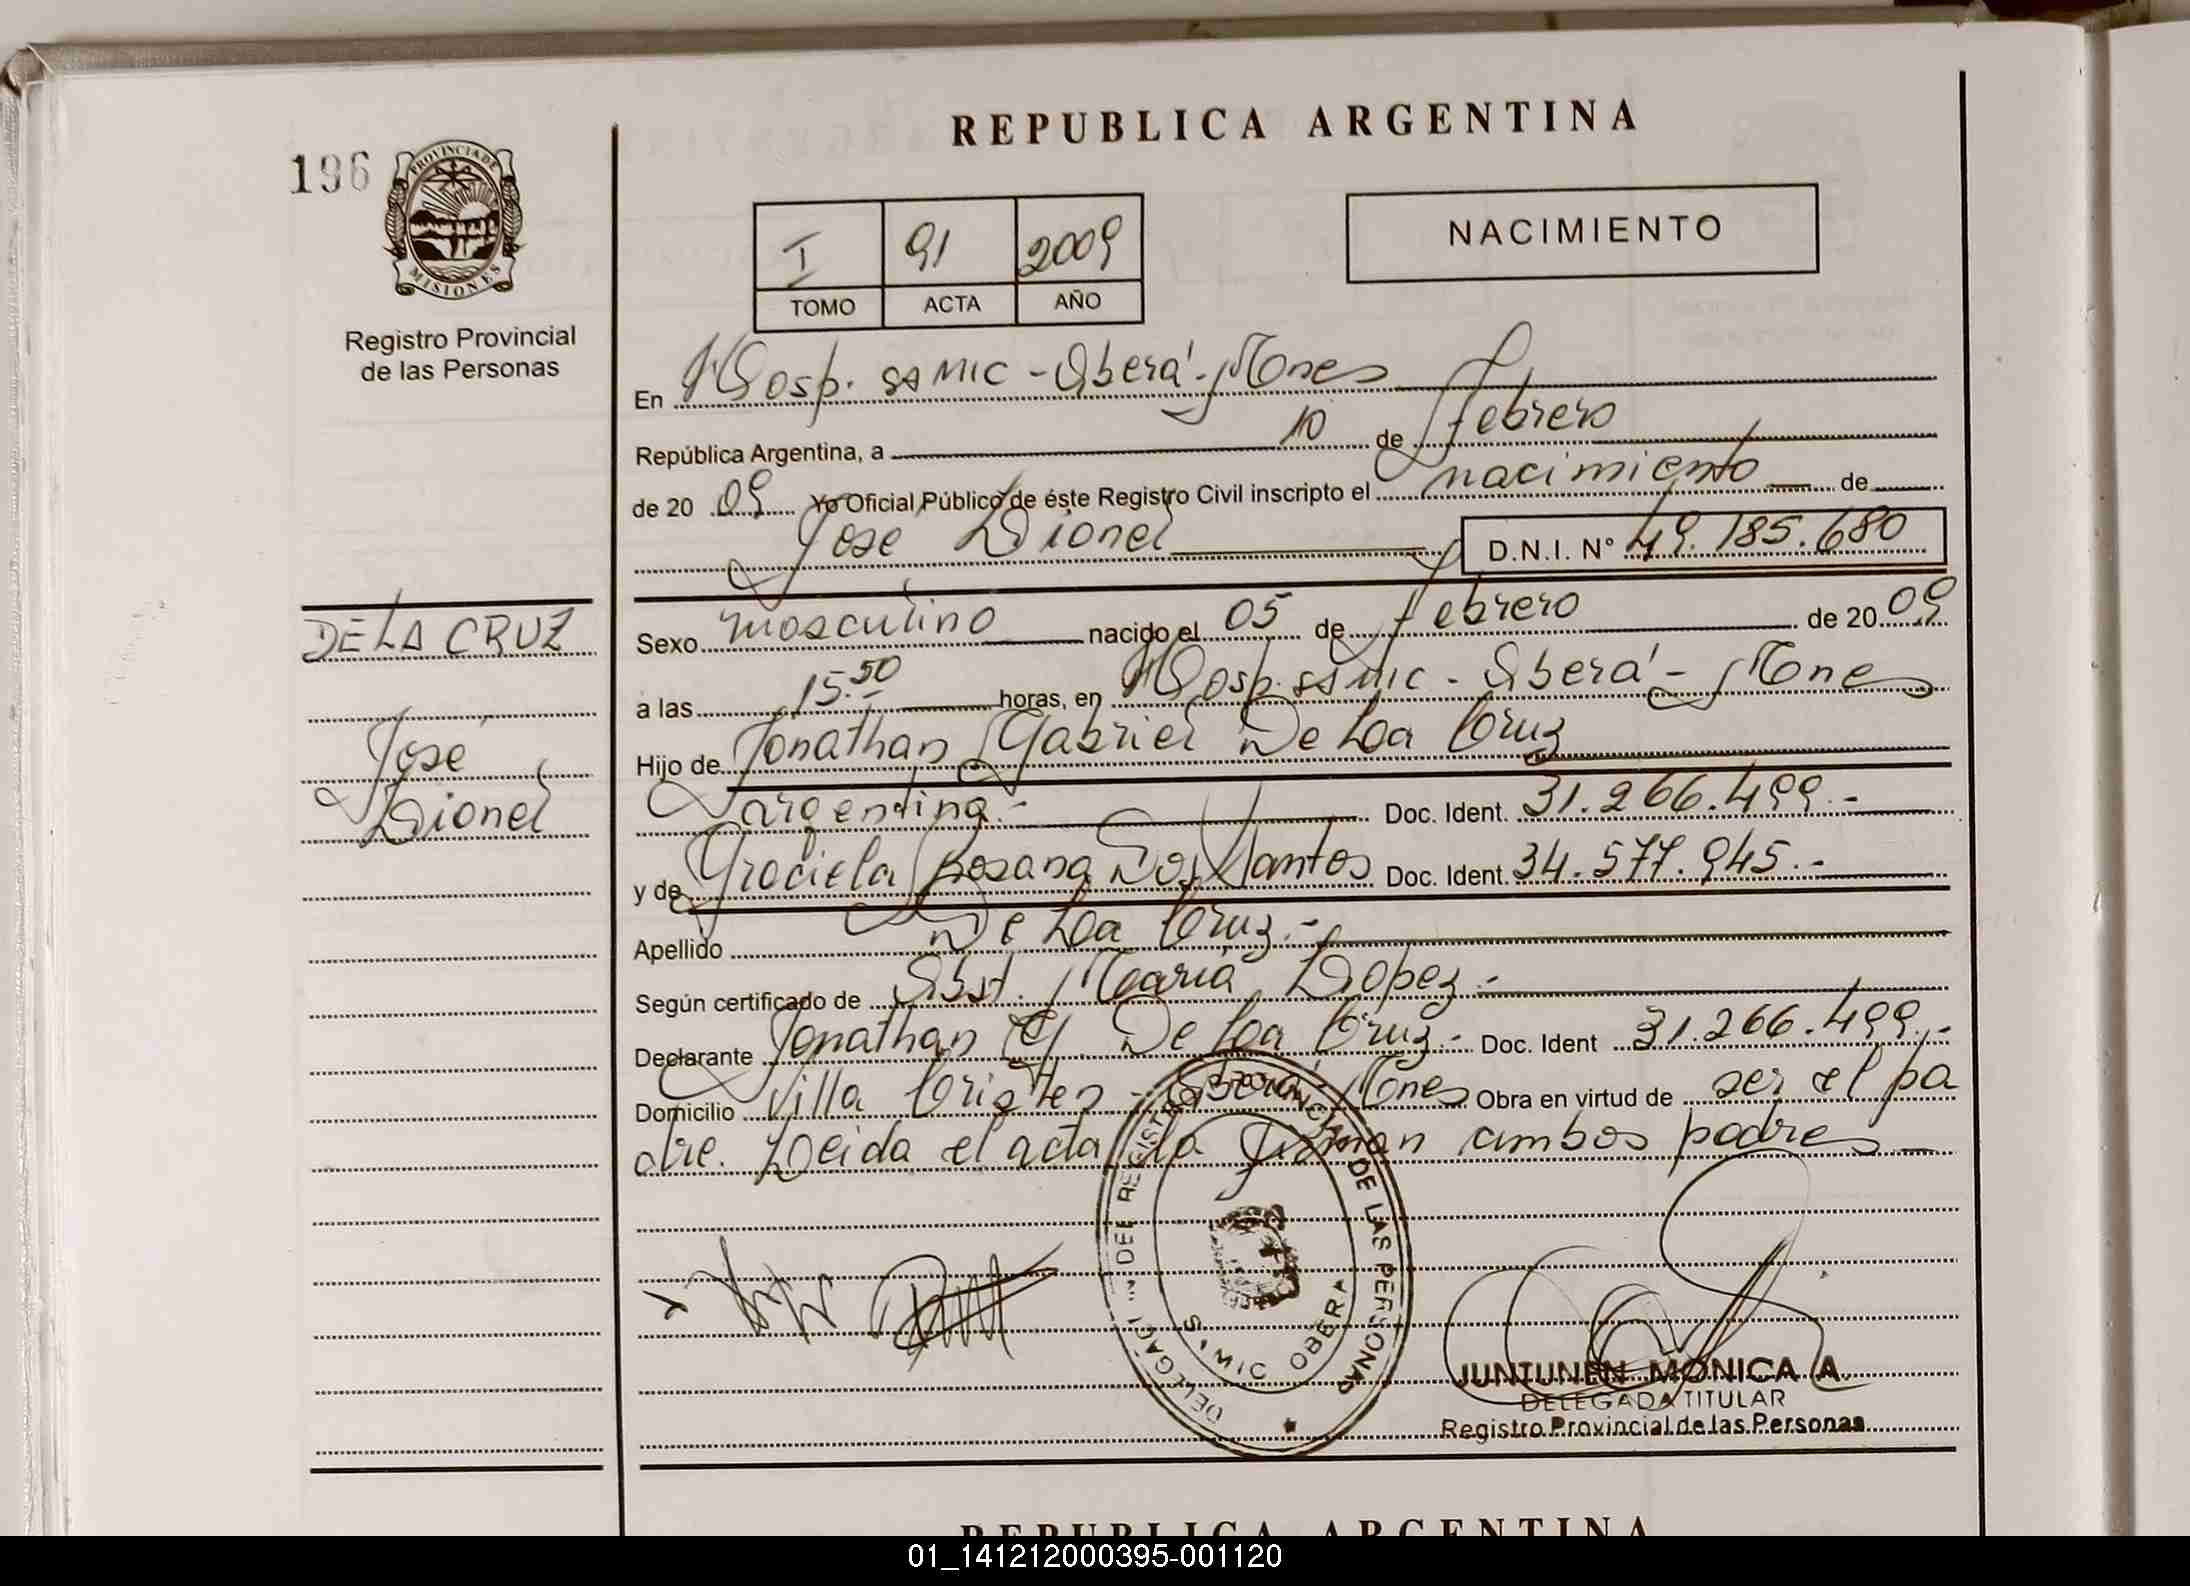 REPUBLICA ARGENTINA
196
PROVINCIA DE
MISIONES
Registro Provincial
de las Personas
I 91 2009
TOMO ACTA AÑO
NACIMIENTO
En Hosp. SAMIC - Oberá - Mones
República Argentina, a 10 de febrero
de 2009 Yo Oficial Público de éste Registro Civil inscripto el nacimiento de
José Lionel D.N.I. N° 49.185.680
DE LA CRUZ
José
Lionel
Sexo masculino nacido el 05 de febrero de 2009
a las 15.50 horas, en Hosp. SAMIC - Oberá - Mones
Hijo de Jonathan Gabriel De La Cruz
argentina.- Doc. Ident. 31.266.499.-
y de Graciela Rosana Dos Santos Doc. Ident. 34.577.945.-
Apellido De La Cruz.-
Según certificado de Obst. María Lopez.-
Declarante Jonathan G. De La Cruz.- Doc. Ident 31.266.499.-
Domicilio Villa - Oberá - Mones Obra en virtud de ser el pa
dre. Leida el acta la firman ambos padres
DELEGACI N DEL REGISTRO PROVINCIAL DE LAS PERSONAS
SAMIC OBERA
JUNTUNEN MONICA A.
DELEGADA TITULAR
Registro Provincial de las Personas
REPUBLICA ARGENTINA
01_141212000395-001120